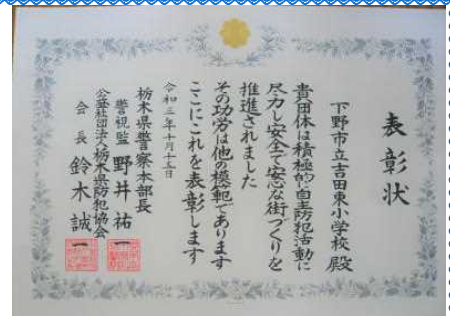 表彰状
下野市立吉田東小学校 殿
貴団体は積極的に自主防犯活動に
尽力し安全で安心な街づくりを
推進されました
その功労は他の模範であります
ここにこれを表彰します
令和三年十月十三日
栃木県警察本部長
警視監 野井祐一
公益社団法人栃木県防犯協会
会長 鈴木誠一